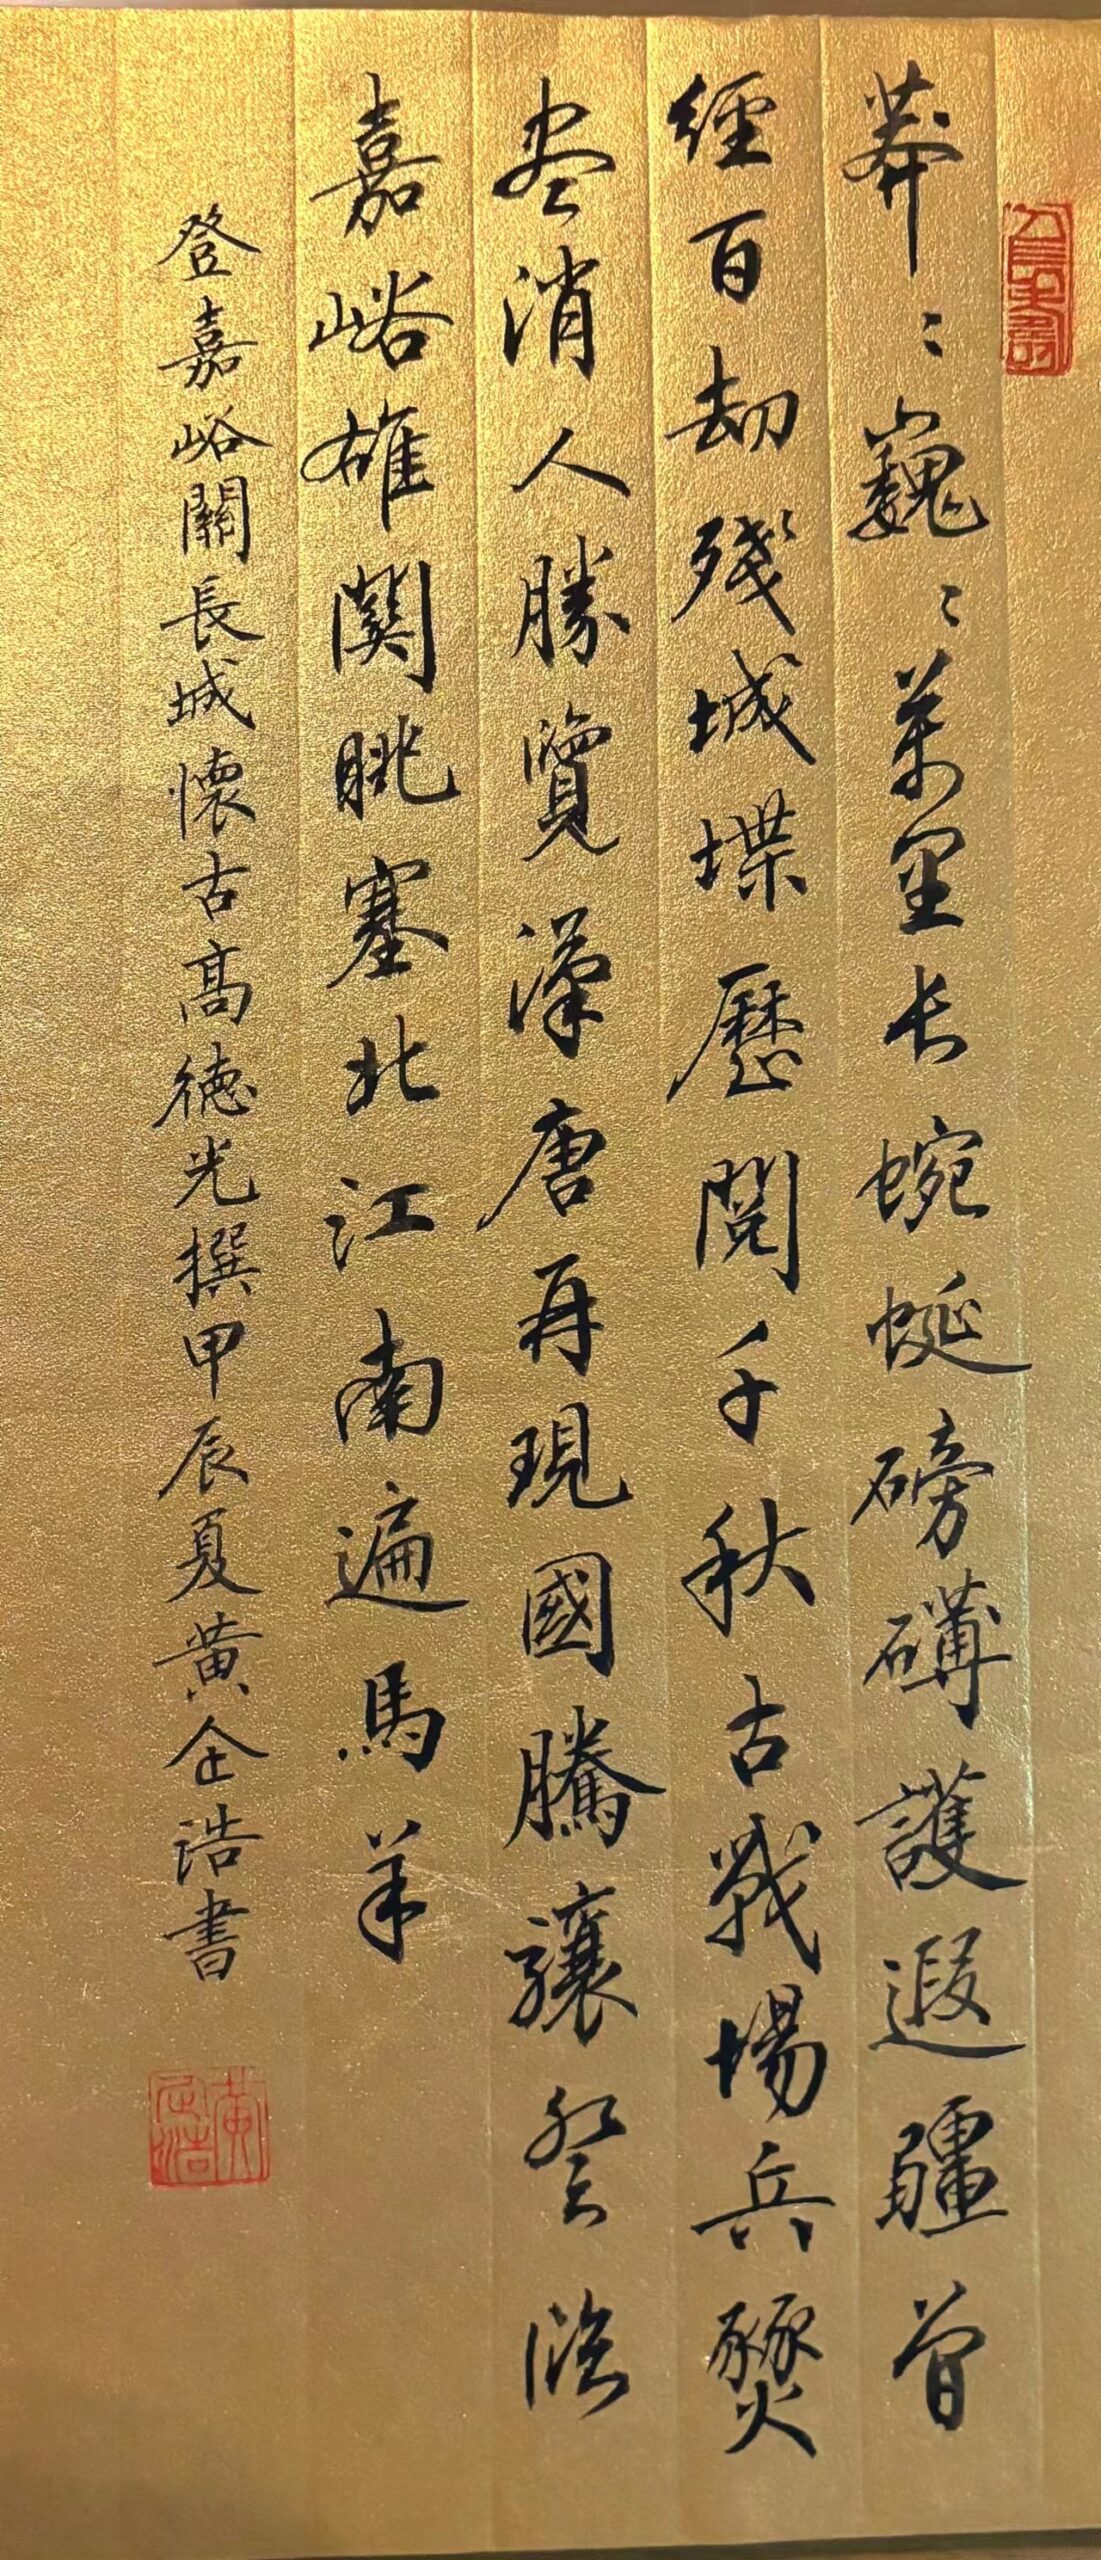 莽〻巍〻萬里长蜿蜒磅礴護遐疆曾
經百劫殘城堞歷閱千秋古戰場兵燹
尽消人勝覽漢唐再現國騰驤登臨
嘉峪雄関眺塞北江南遍馬羊
登嘉峪關長城懷古高德光撰甲辰夏黄企浩書
黄企浩